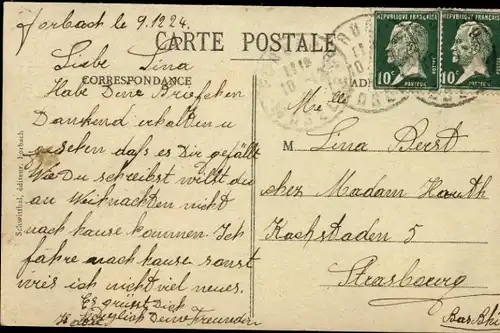 Forbach le 9.12.24.
CARTE POSTALE
CORRESPONDANCE
Liebe Lina
Habe Deine Briefchen
Dankend erhalten u
gesehen daß es Dir gefällt
Wie Du schreibst willst du
an Weihnachten nicht
nach hause kommen. Ich
fahre nach hause sonst
weis ich nicht viel neues.
Es grüsst Dich
herzlich Deine Freundin
Schwitthal, éditeur, Forbach
REPUBLIQUE FRANÇAISE
10c
POSTES
REPUBLIQUE FRANÇAISE
10c
POSTES
Melle
M Lina Berst
chez Madam
Kochstaden 5
Strasbourg
Bas Rhin